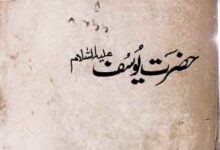 حضرت یُوسُف علیہ السلام